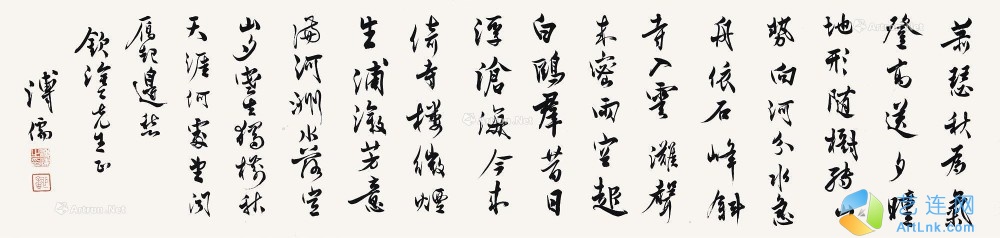 蕭瑟秋為氣
登高送夕曛
地形隨樹轉山
勢向河分水急
舟依石峰斜
寺入雲灘聲
來密雨空起
白鷗群昔日
浮滄海今來
倚寺樓微煙
生浦漵芳意
滿河洲水落空
山夕雲生獨樹秋
天涯何處望聞
雁起邊愁
欽先生正
溥儒
艺连网
ArtLnk.com
Artron.Net